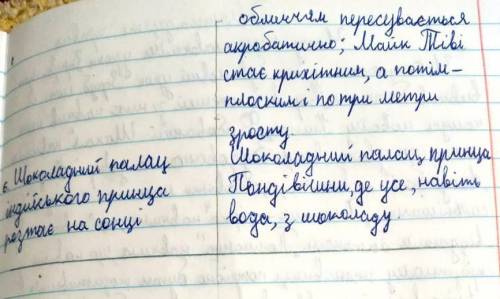 обличчям пересувається
акробатично; Майк Тіві
стає крихітним, а потім–
плоским і по три метри
зросту.
є. Шоколадний палац
індійського принца
розтає на сонці
Шоколадний палац принца
Пондівішни, де усе, навіть
вода, з шоколаду